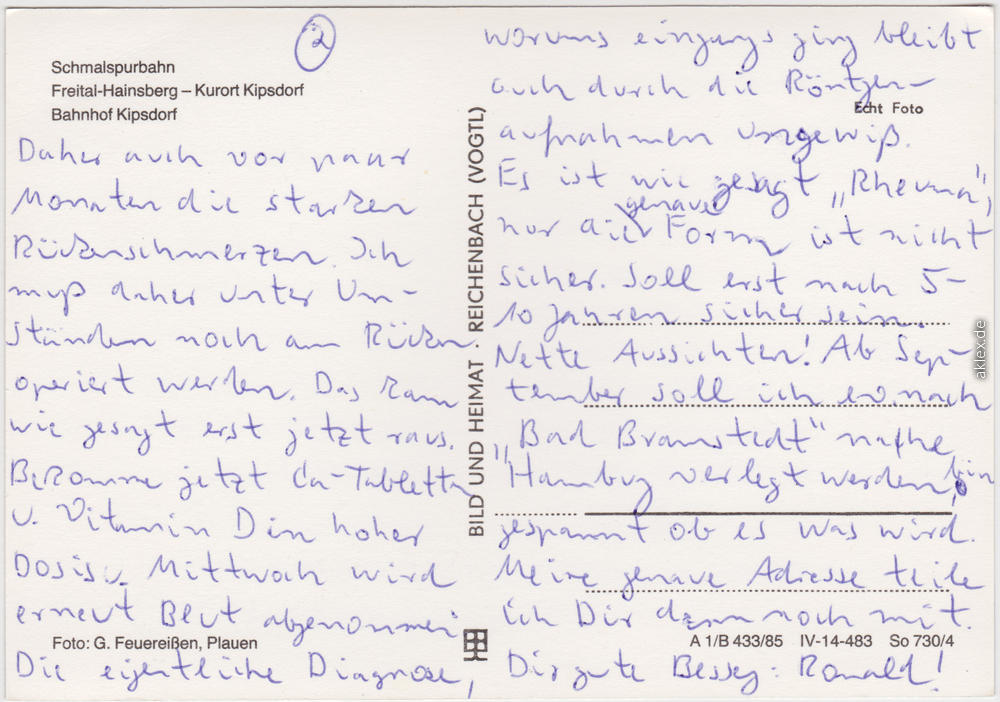 2
Schmalspurbahn
Freital-Hainsberg – Kurort Kipsdorf
Bahnhof Kipsdorf
Daher auch vor paar
Monaten die starken
Rückenschmerzen. Ich
muß daher unter Um-
ständen noch am Rücken
operiert werden. Das kam
wie gesagt erst jetzt raus.
Bekomme jetzt Ca-Tabletten
u. Vitamin D in hoher
Dosis u. Mittwoch wird
erneut Blut abgenommen
Foto: G. Feuereißen, Plauen
Die eigentliche Diagnose,
BILD UND HEIMAT · REICHENBACH (VOGTL)
worums eingangs ging bleibt
auch durch die Röntgen-
Echt Foto
aufnahmen ungewiß.
Es ist wie gesagt „Rheuma",
genaue
nur die Form ist nicht
sicher. Soll erst nach 5-
10 Jahren sicher sein.
Nette Aussichten! Ab Sep-
tember soll ich ev. nach
„Bad Bramstedt" nähe
Hamburg verlegt werden, bin
gespannt ob es was wird.
Meine genaue Adresse teile
ich Dir dann noch mit.
A 1/B 433/85 IV-14-483 So 730/4
Dir gute Besserg: Ronald!
aklex.de